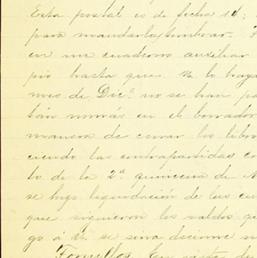 Esta postal es de fecha 14;
para mandarle, nombrar.
en un cuaderno auxiliar
pió hasta que V. lo haya
mes de Dicº. no se han pa
tán minás en el borrador
manera de cerrar los libro
ciendo las contrapartidas co
lo de la 2ª. quincena de
se hizo liquidación de las cu
que siguieron los valdos, q
go á V. se sirva decirme
Fornellos. En carta de